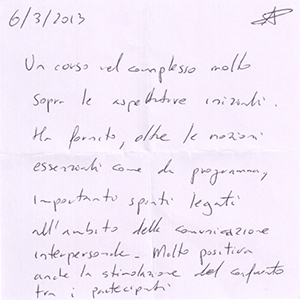 6/3/2013
Un corso nel complesso molto
sopra le aspettative iniziali.
Ha fornito, oltre le nozioni
essenziali come da programma,
importanti spunti legati
all'ambito della comunicazione
interpersonale. Molto positiva
anche la stimolazione del confronto
tra i partecipanti